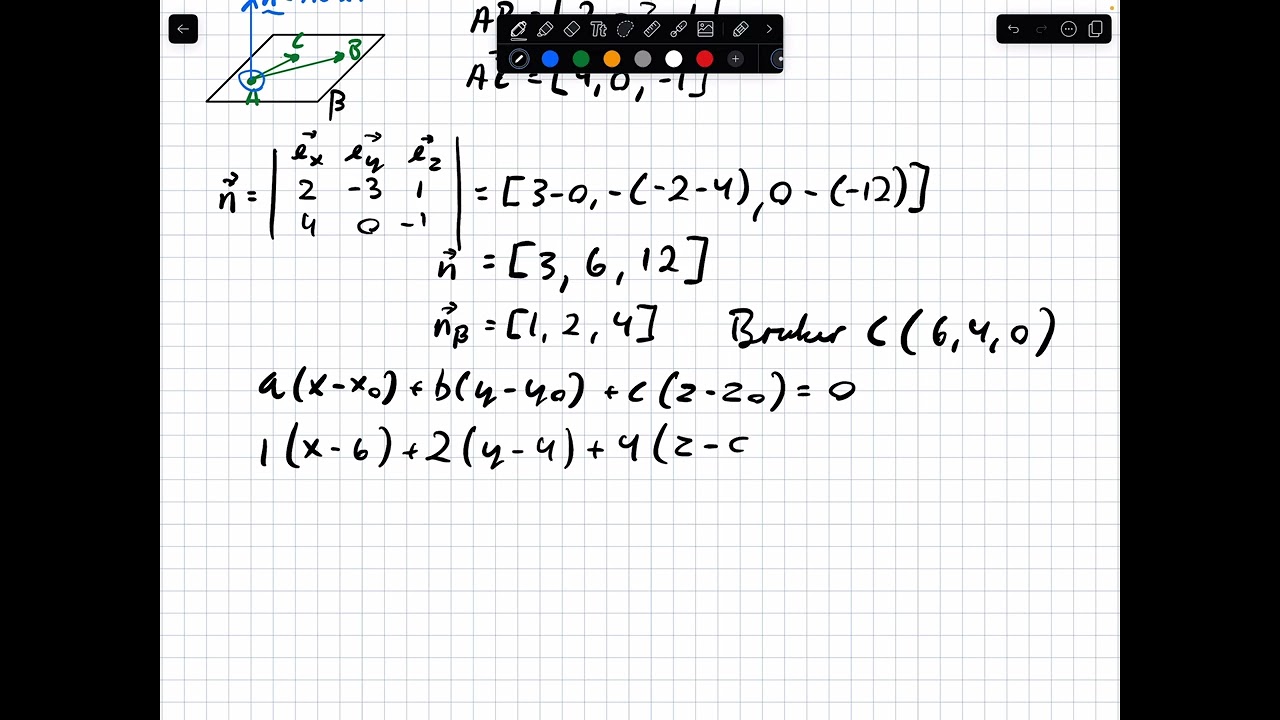 C
B
A
β
AC = [4, 0, -1]
n⃗ = | e⃗x e⃗y e⃗z | = [3-0, -(-2-4), 0-(-12)]
2 -3 1
4 0 -1
n⃗ = [3, 6, 12]
n⃗β = [1, 2, 4] Bruker C(6,4,0)
a(x-x₀) + b(y-y₀) + c(z-z₀) = 0
1(x-6) + 2(y-4) + 4(z-